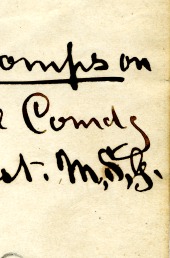 ompson
Comdg
st. M.S.G.